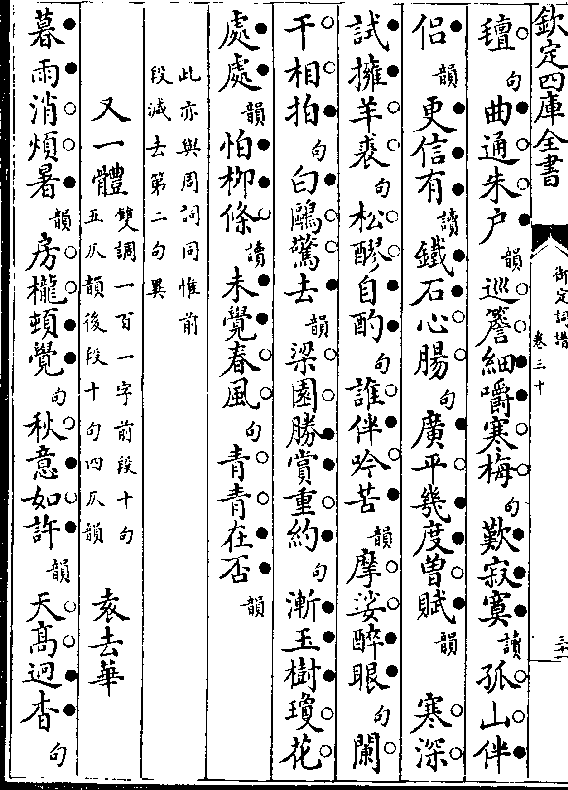 欽定四庫全書
御定詞譜
卷三十
氈句曲通朱户韻巡簷細嚼寒梅句歎寂寞讀孤山伴
侣韻更信有讀鐵石心腸句廣平幾度曾賦韻寒深
試擁羊裘句松醪自酌句誰伴吟苦韻摩娑醉眼句闌
干相拍句白鷗驚去韻梁園勝賞重約句漸玉樹瓊花
處處韻怕柳條讀未覺春風句青青在否韻
此亦與周詞同惟前
段減去第二句異
又一體雙調一百一字前段十句
五仄韻後段十句四仄韻
袁去華
暮雨消煩暑韻房櫳頓覺句秋意如許韻天髙迥杳句